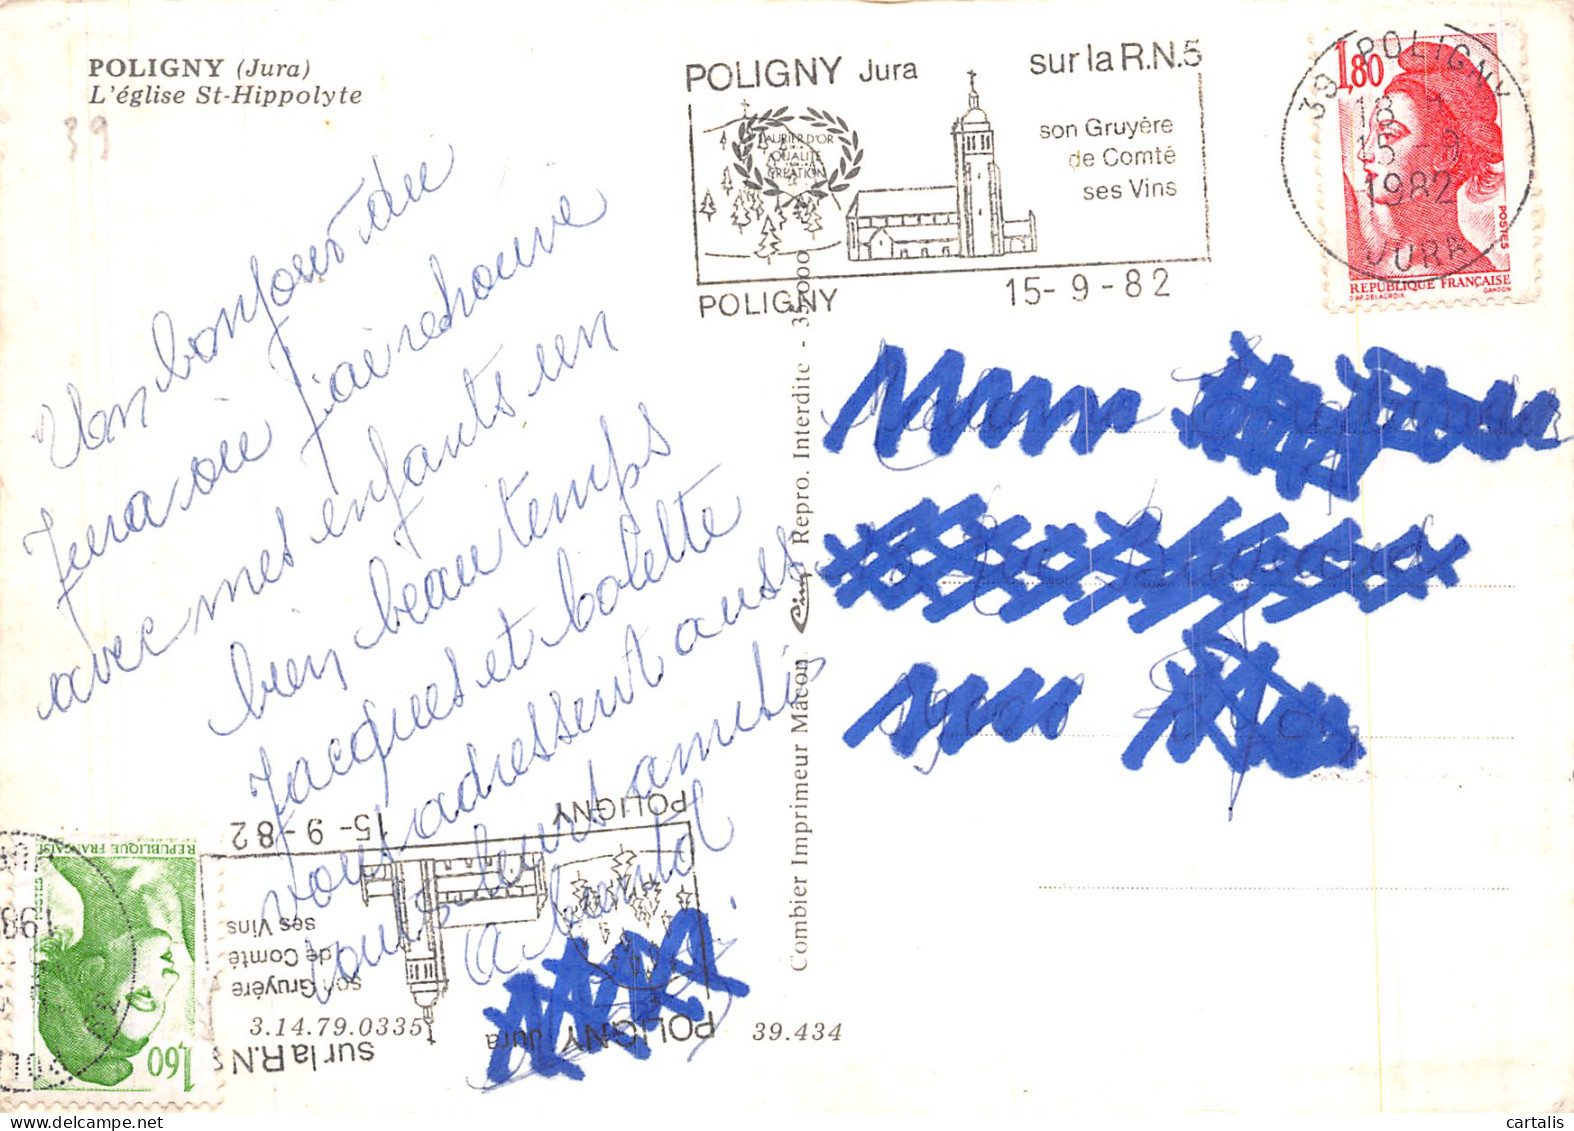 POLIGNY (Jura)
L'église St-Hippolyte
39
Un bonjour du
Jura où j'ai retrouvé
avec mes enfants un
bien beau temps
Jacques et
vous adressent aussi
tous leurs amitiés
A bientôt
POLIGNY Jura
sur la R.N.5
LAURIER D'OR
QUALITÉ
CRÉATION
son Gruyère
de Comté
ses Vins
POLIGNY
15-9-82
1,80
39 POLIGNY
18 H
15-9
1982
JURA
POSTES
REPUBLIQUE FRANÇAISE
D'AP. DELACROIX
GANDON
Combier Imprimeur Mâcon Cim Repro. Interdite - 35.000
15-9-82
POLIGNY
REPUBLIQUE FRANÇAISE
POSTES
198
ses Vins
de Comté
son Gruyère
sur la R.N
POLIGNY Jura
1,60
3.14.79.0335
39.434
cartalis